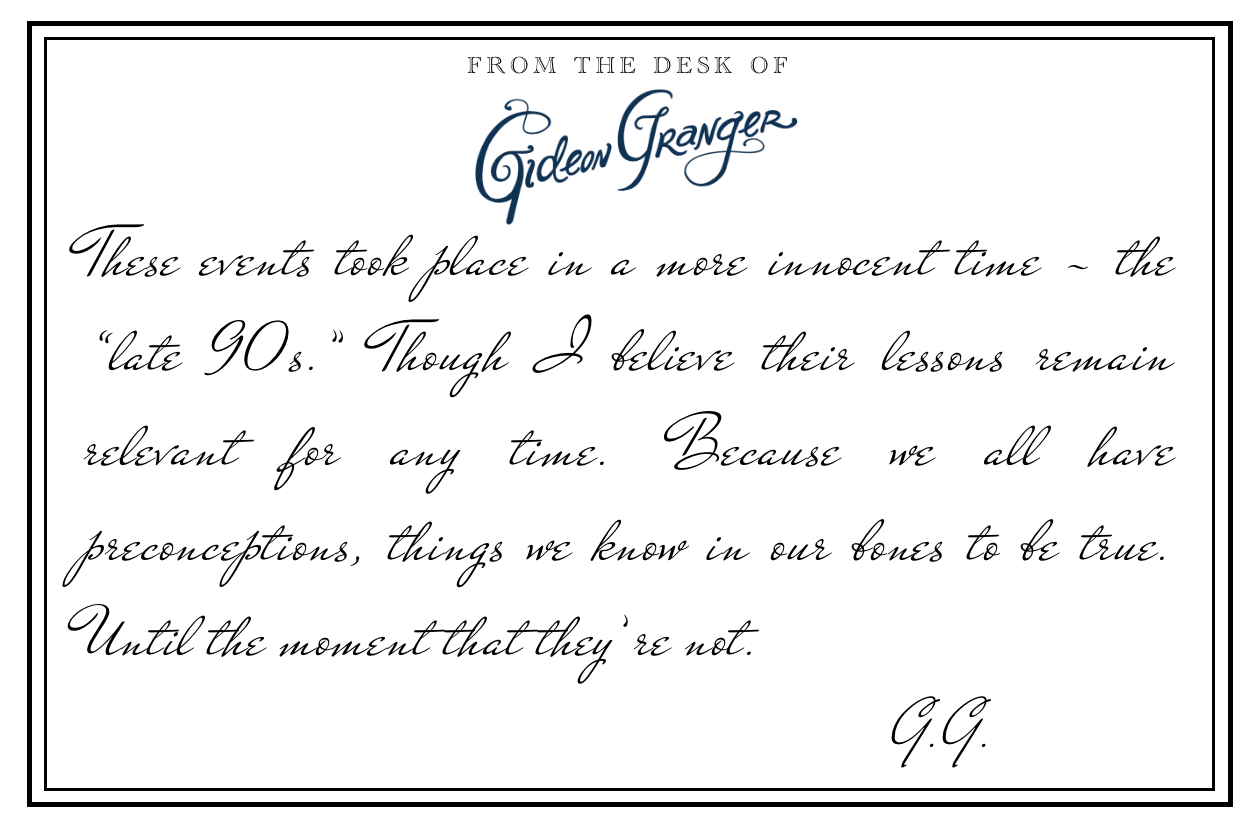 FROM THE DESK OF
Gideon Granger
These events took place in a more innocent time ~ the
“late 90s.” Though I believe their lessons remain
relevant for any time. Because we all have
preconceptions, things we know in our bones to be true.
Until the moment that they’re not.
G.G.